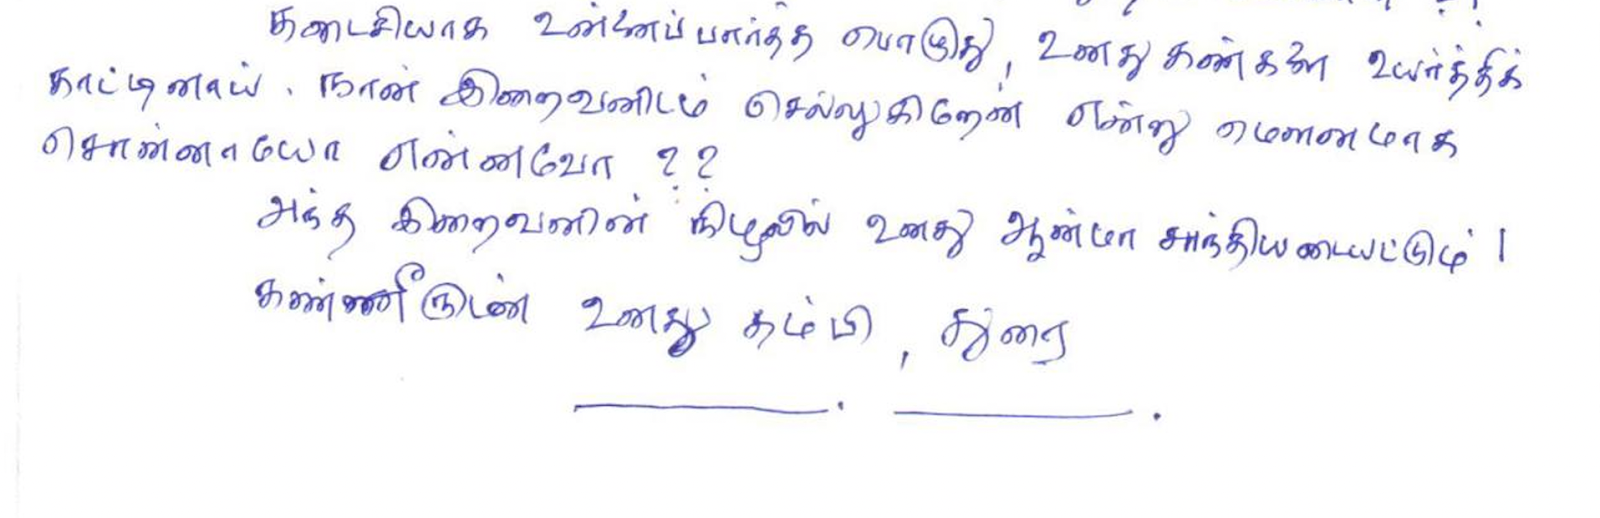 கடைசியாக உன்னைப் பார்த்த பொழுது, உனது கண்களை உயர்த்திக்
காட்டினாய். நான் இறைவனிடம் செல்லுகிறேன் என்று மௌனமாக
சொன்னாயோ என்னவோ ??
அந்த இறைவனின் நிழலில் உனது ஆன்மா சாந்தியடையட்டும் !
கண்ணீருடன் உனது தம்பி, துரை